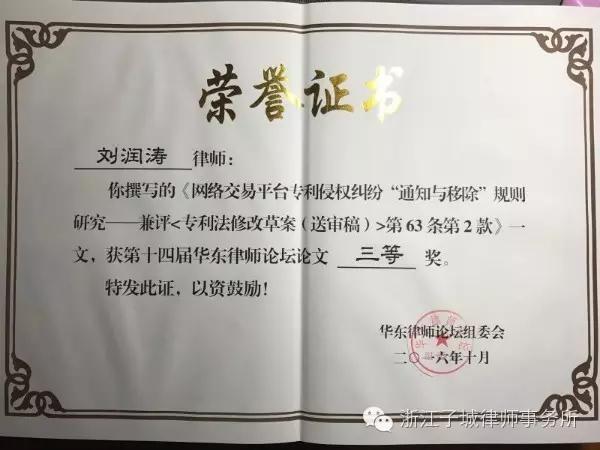 荣誉证书
刘润涛 律师：
你撰写的《网络交易平台专利侵权纠纷“通知与移除”规则
研究——兼评<专利法修改草案（送审稿）>第63条第2款》一
文，获第十四届华东律师论坛论文 三等 奖。
特发此证，以资鼓励！
华东律师论坛组委会
二〇一六年十月
浙江子城律师事务所